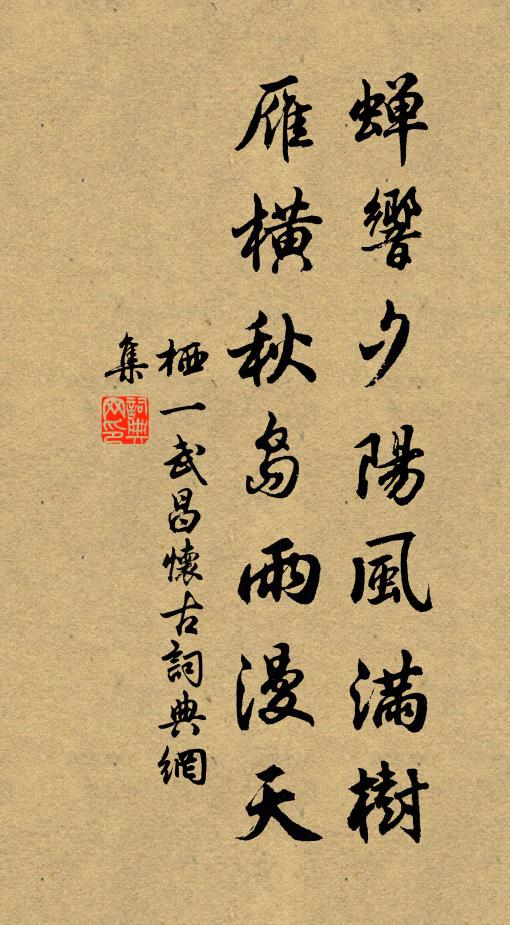 蟬響夕陽風滿樹
雁橫秋島雨漫天
栖一武昌懷古詞典網
集
詞典
网印